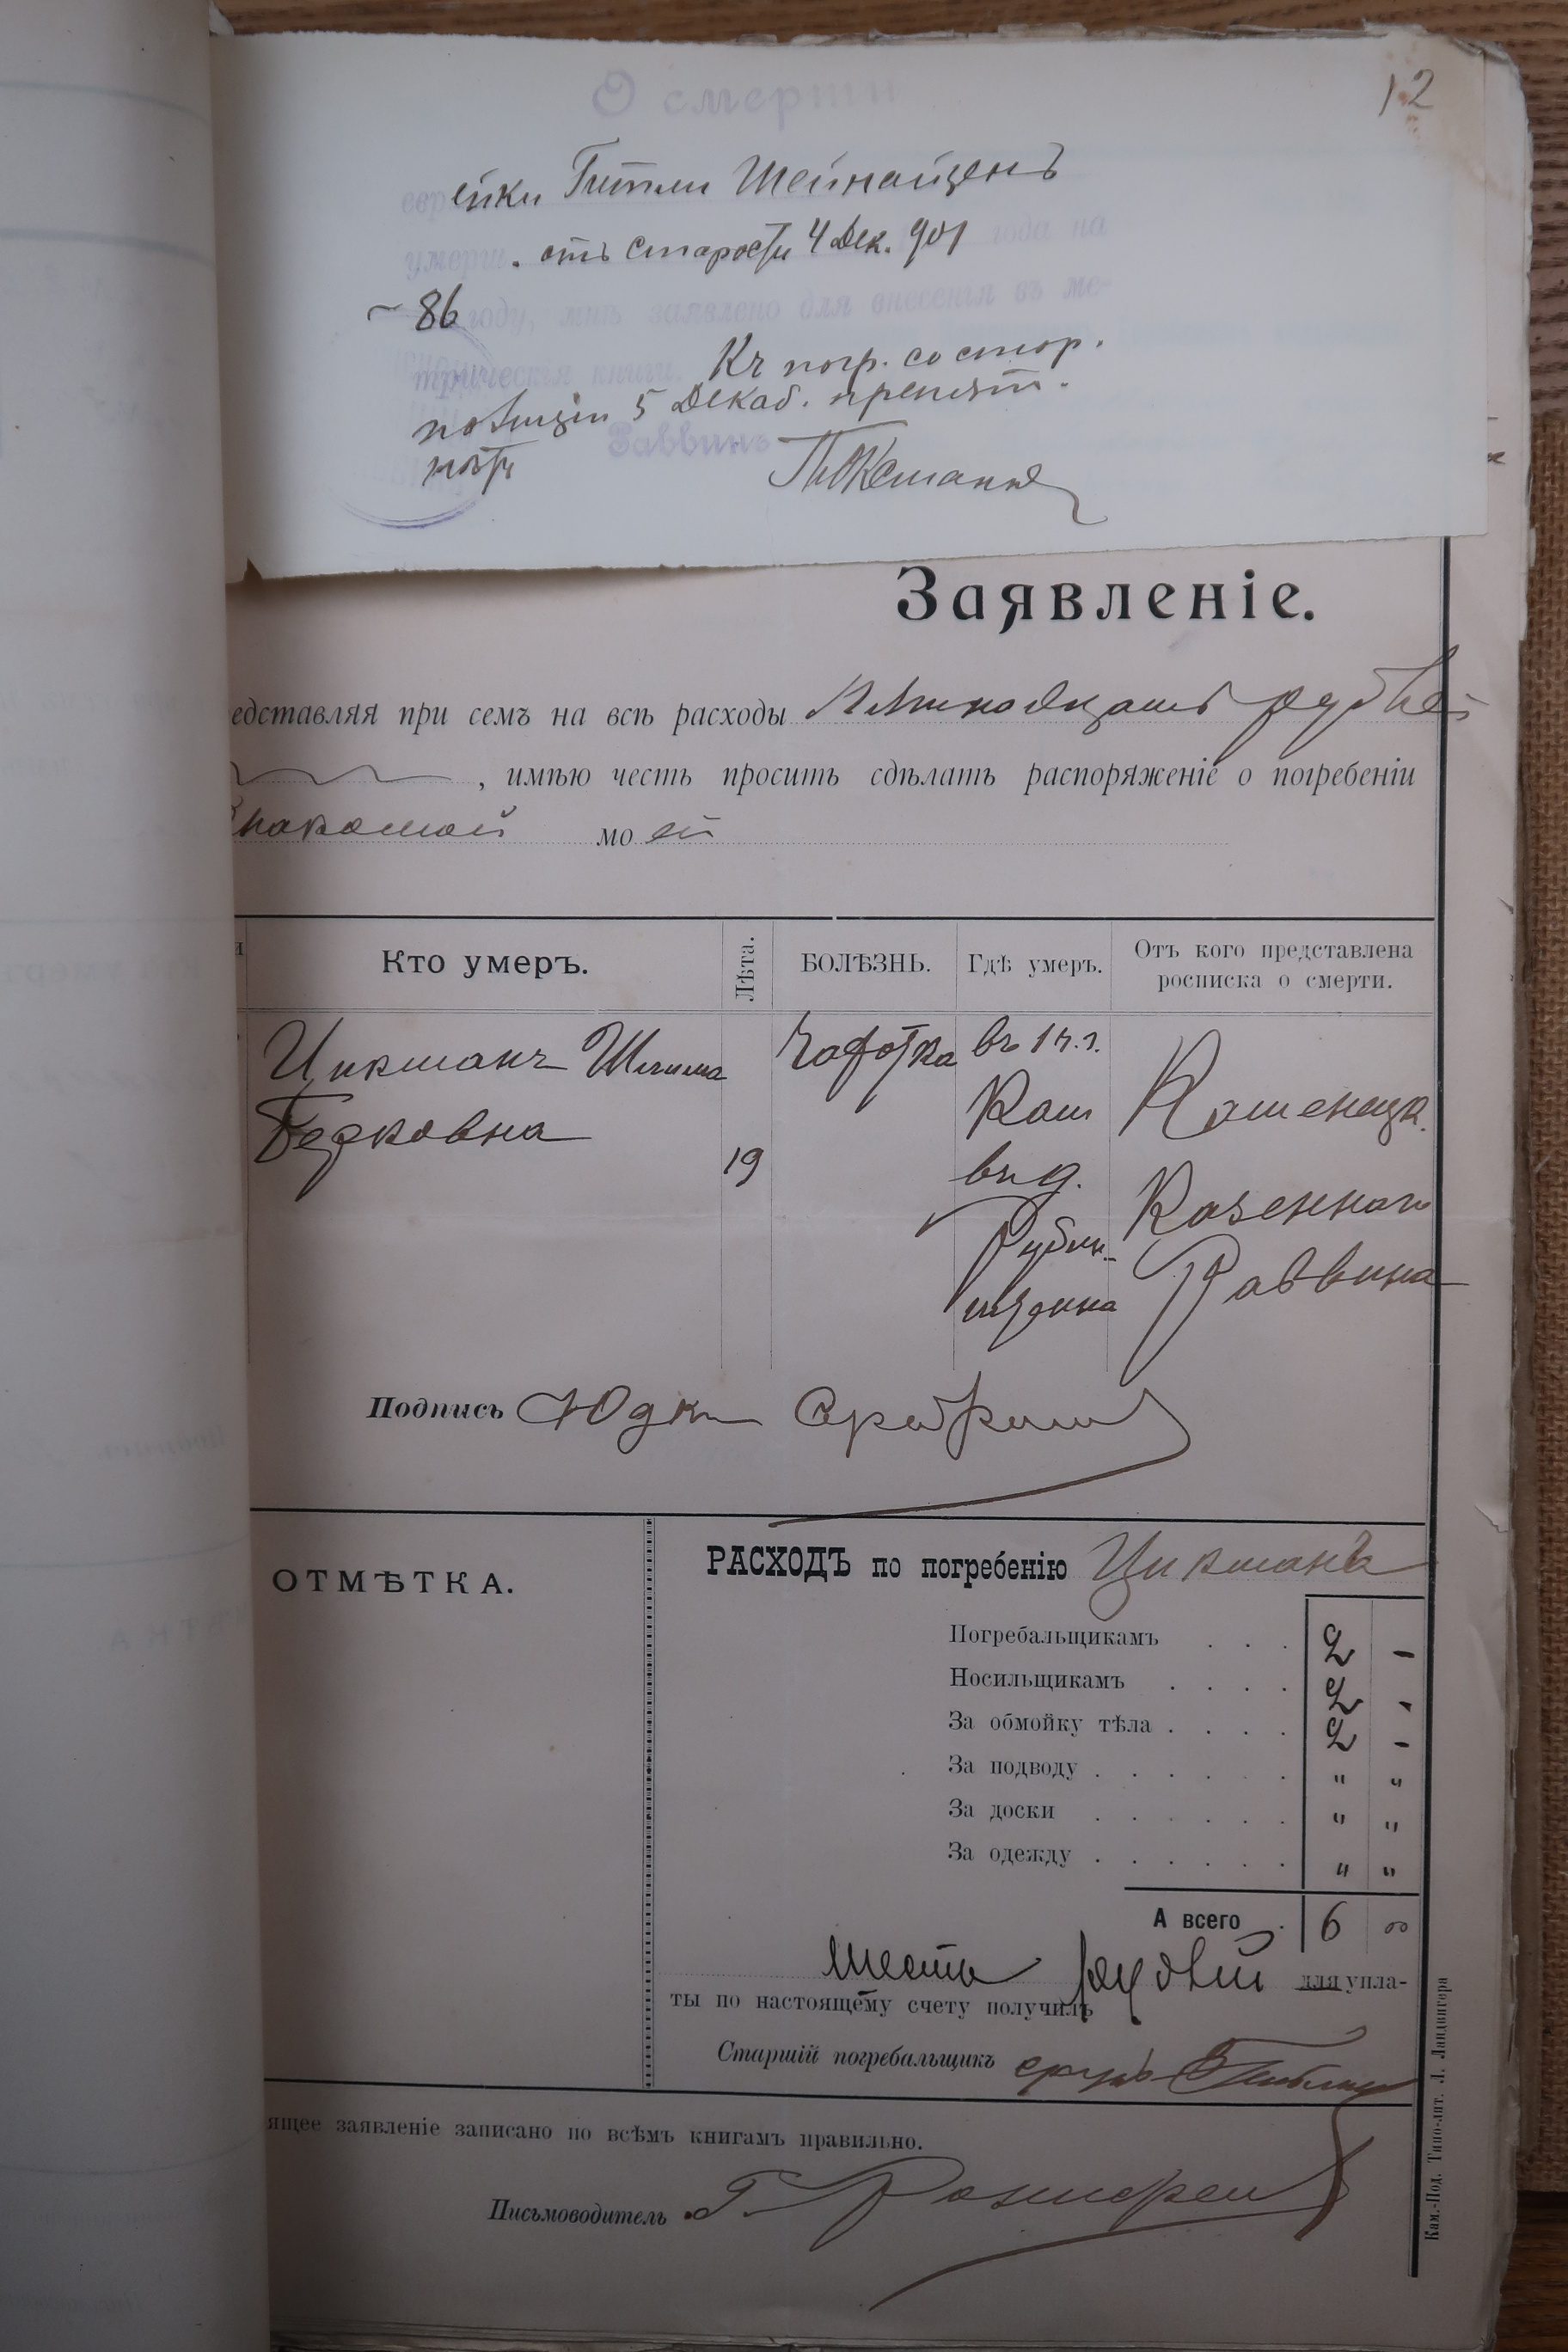 12
О смерти
еврейки Гитли Шейнайзенъ
умерш. отъ старости 4 Дек. 901 года на
86 году, мнѣ заявлено для внесенія въ ме-
трическія книги. Къ погр. со стор.
полиціи 5 Декаб. препят.
нѣтъ
Раввинъ
Заявленіе.
едставляя при семъ на всѣ расходы рублей
, имѣю честь просить сдѣлать распоряженіе о погребеніи
знакомой моей
Кто умеръ. Лѣта. БОЛѢЗНЬ. Гдѣ умеръ. Отъ кого представлена росписка о смерти.
Цикманъ Шлима Чахотка въ 1 ч. г.
Берковна Кам Каменецк.
19 въ д. Казеннаго
Рубин-
штейна Раввина
Подпись Юдко
ОТМѢТКА.
РАСХОДЪ по погребенію Цикманъ
Погребальщикамъ . . . 2 -
Носильщикамъ . . . . 2 -
За обмойку тѣла . . . . 2 -
За подводу . . . . . . " "
За доски . . . . . . " "
За одежду . . . . . . " "
А всего . 6 00
шесть рублей для упла-
ты по настоящему счету получилъ
Старшій погребальщикъ
ящее заявленіе записано по всѣмъ книгамъ правильно.
Письмоводитель Г.
Кам.-Под. Типо-лит. Л. Ландвигера